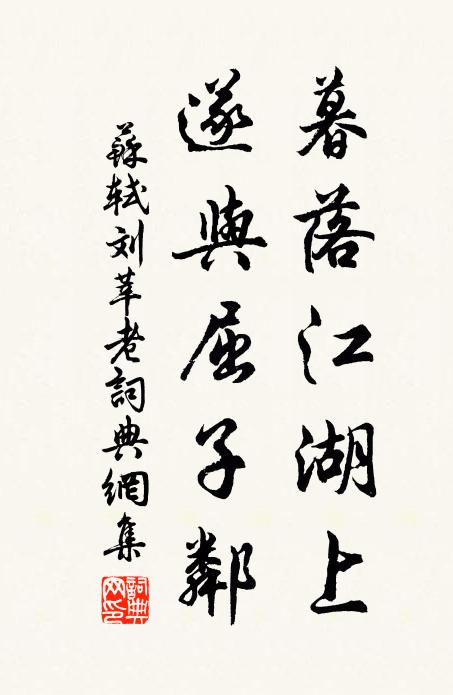 暮落江湖上
遂與屈子鄰
蘇軾刘莘老詞典網集
詞典網印